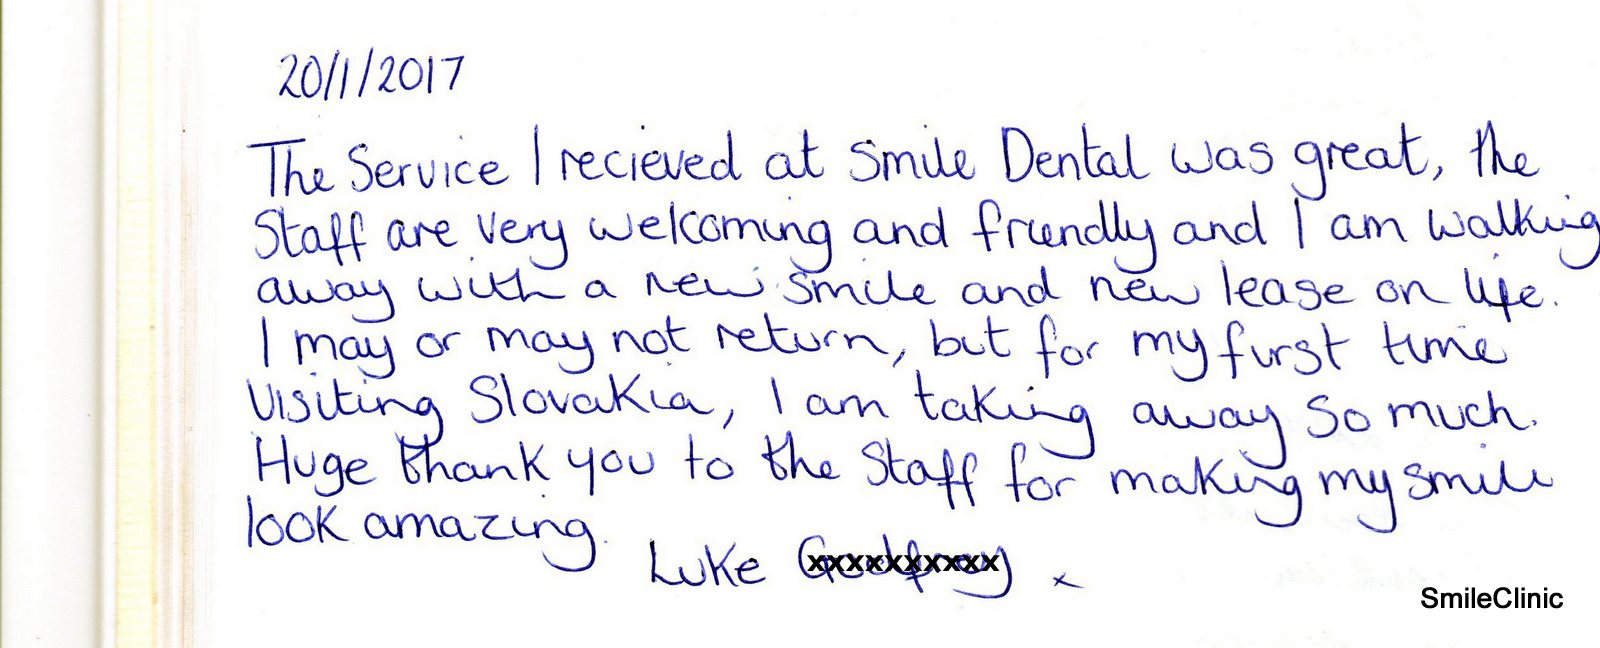 20/1/2017
The Service I recieved at Smile Dental was great, the
Staff are very welcoming and friendly and I am walking
away with a new smile and new lease on life.
I may or may not return, but for my first time
visiting Slovakia, I am taking away so much.
Huge thank you to the staff for making my smile
look amazing.
Luke xxxxxxxxxx x
SmileClinic